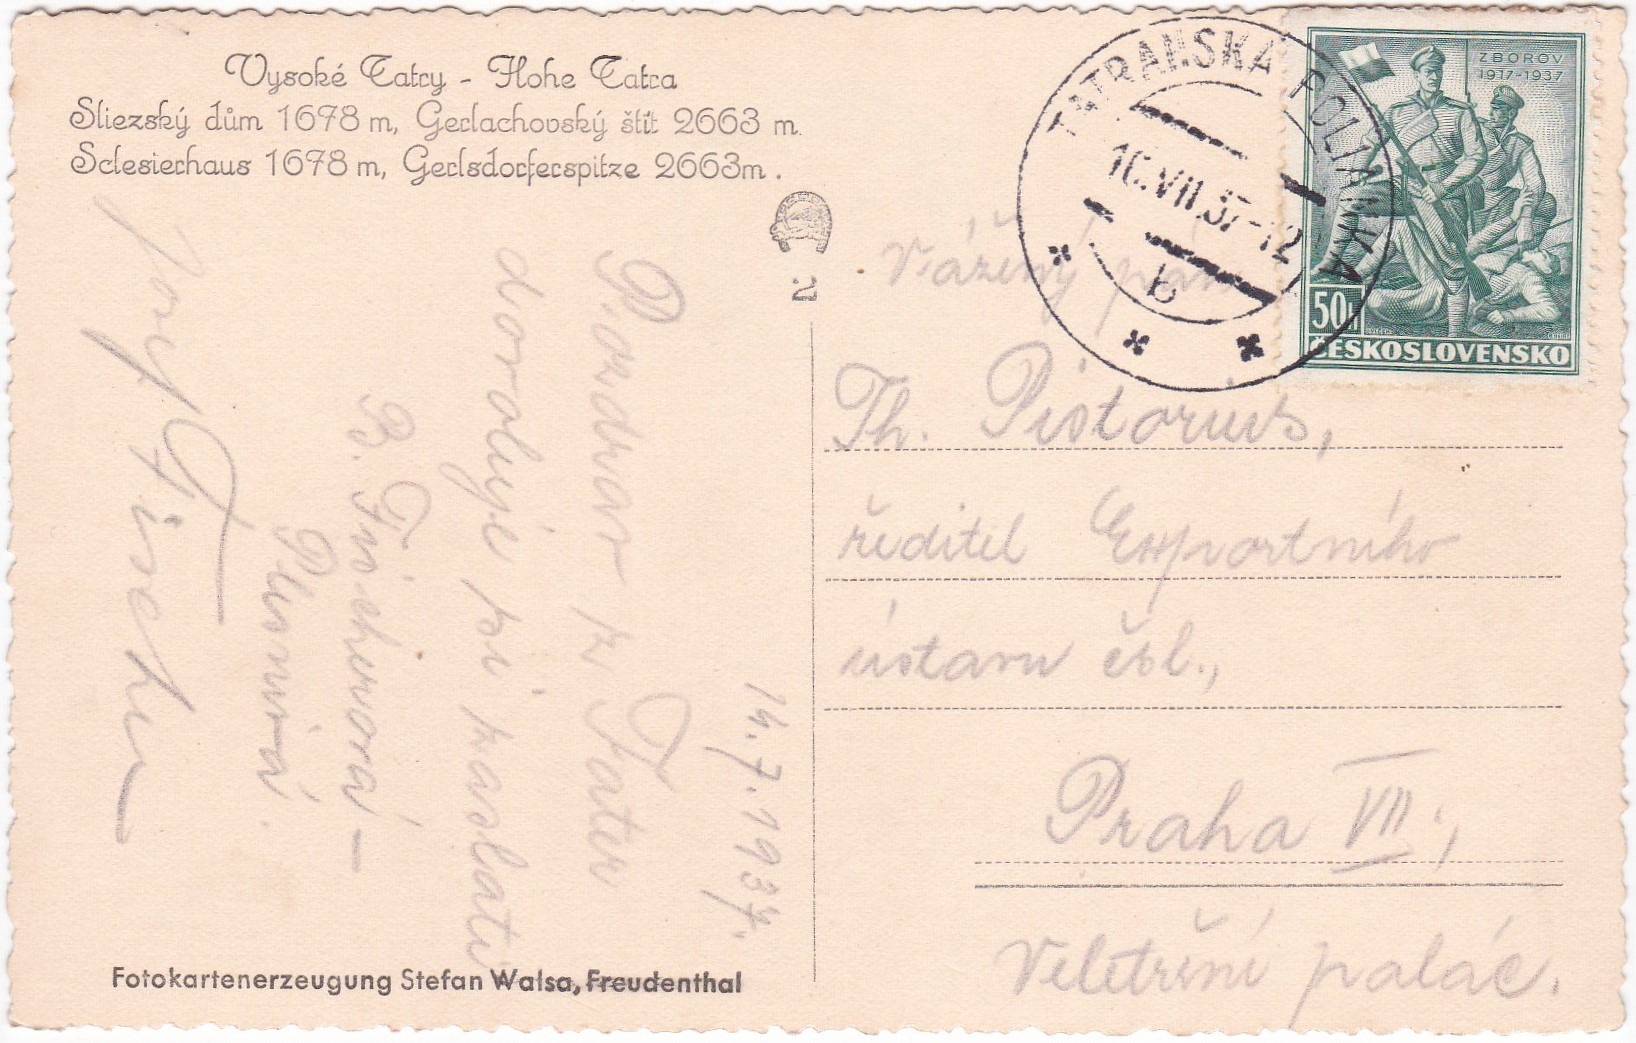 Vysoké Tatry - Hohe Tatra
Sliezský dům 1678 m, Gerlachovský štít 2663 m.
Sclesierhaus 1678 m, Gerlsdorferspitze 2663m.
2
14.7.1937.
Pozdrav z Tater
dovoluje si zaslati
B. Fischerová –
Plesnivá.
Fischer
Fotokartenerzeugung Stefan Walsa, Freudenthal
TATRANSKÁ POLIANKA
16.VII.37-12
b
ZBOROV
1917-1937
50h
ČESKOSLOVENSKO
Vážený pan
Th. Pistorius,
ředitel Exportního
ústavu čsl.,
Praha VII.,
Veletržní palác.